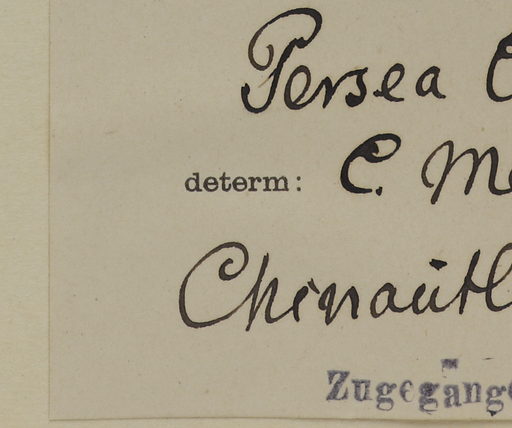 Persea
determ: C. Me
Chinautl
Zugegange